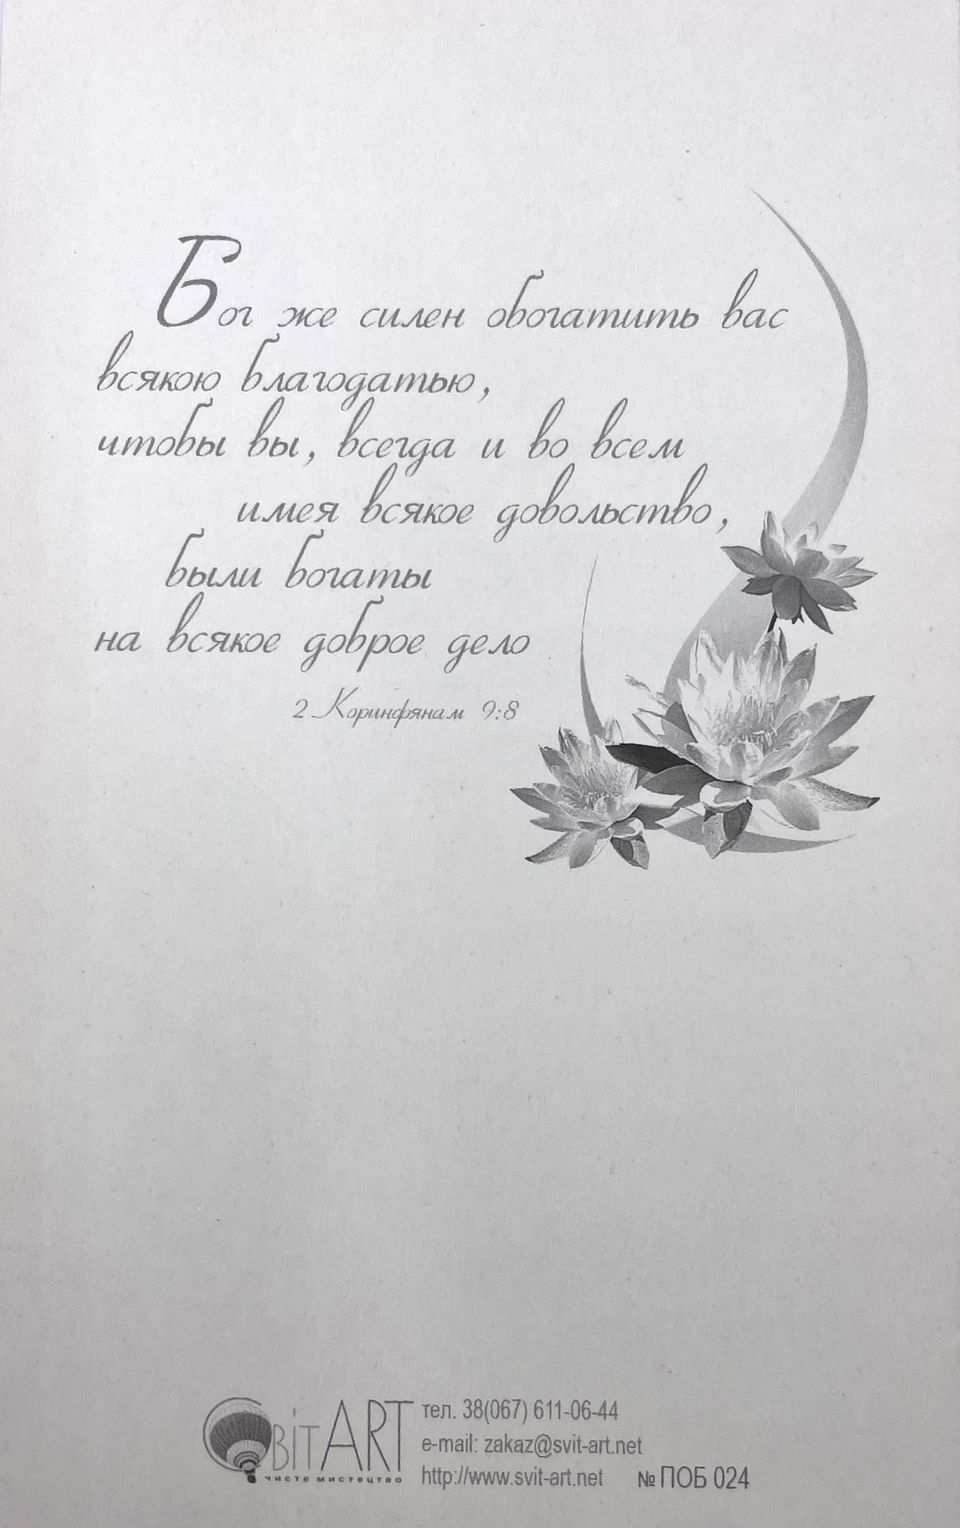 Бог же силен обогатить вас
всякою благодатью,
чтобы вы, всегда и во всем
имея всякое довольство,
были богаты
на всякое доброе дело
2 Коринфянам 9:8
СвітART
чисте мистецтво
тел. 38(067) 611-06-44
e-mail: zakaz@svit-art.net
http://www.svit-art.net № ПОБ 024